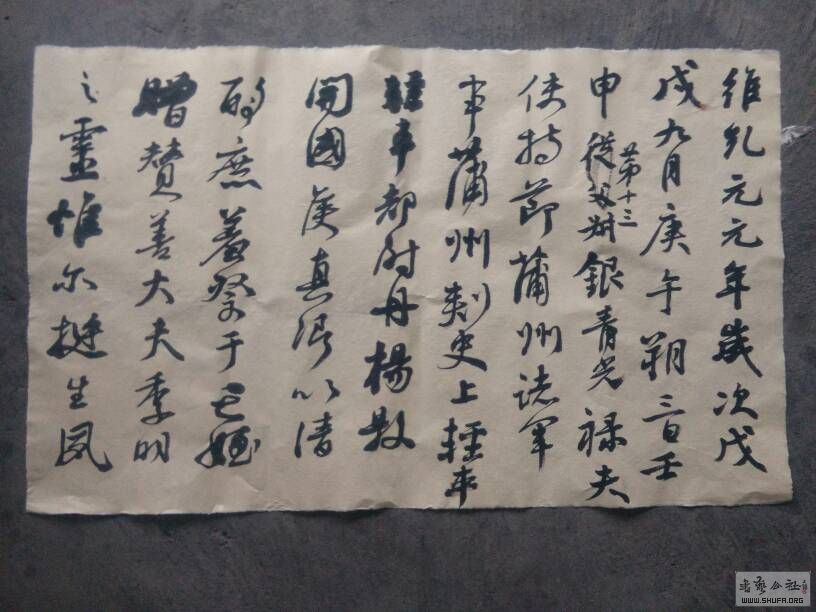 維乾元元年歲次戊
戌九月庚午朔三日壬
申從父叔銀青光禄夫
第十三
使持節蒲州諸軍
事蒲州刺史上輕車
輕車都尉丹楊縣
開國侯真卿以清
酌庶羞祭于亡姪
贈贊善大夫季明
之靈惟尔挺生夙
書藝公社
WWW.SHUFA.ORG